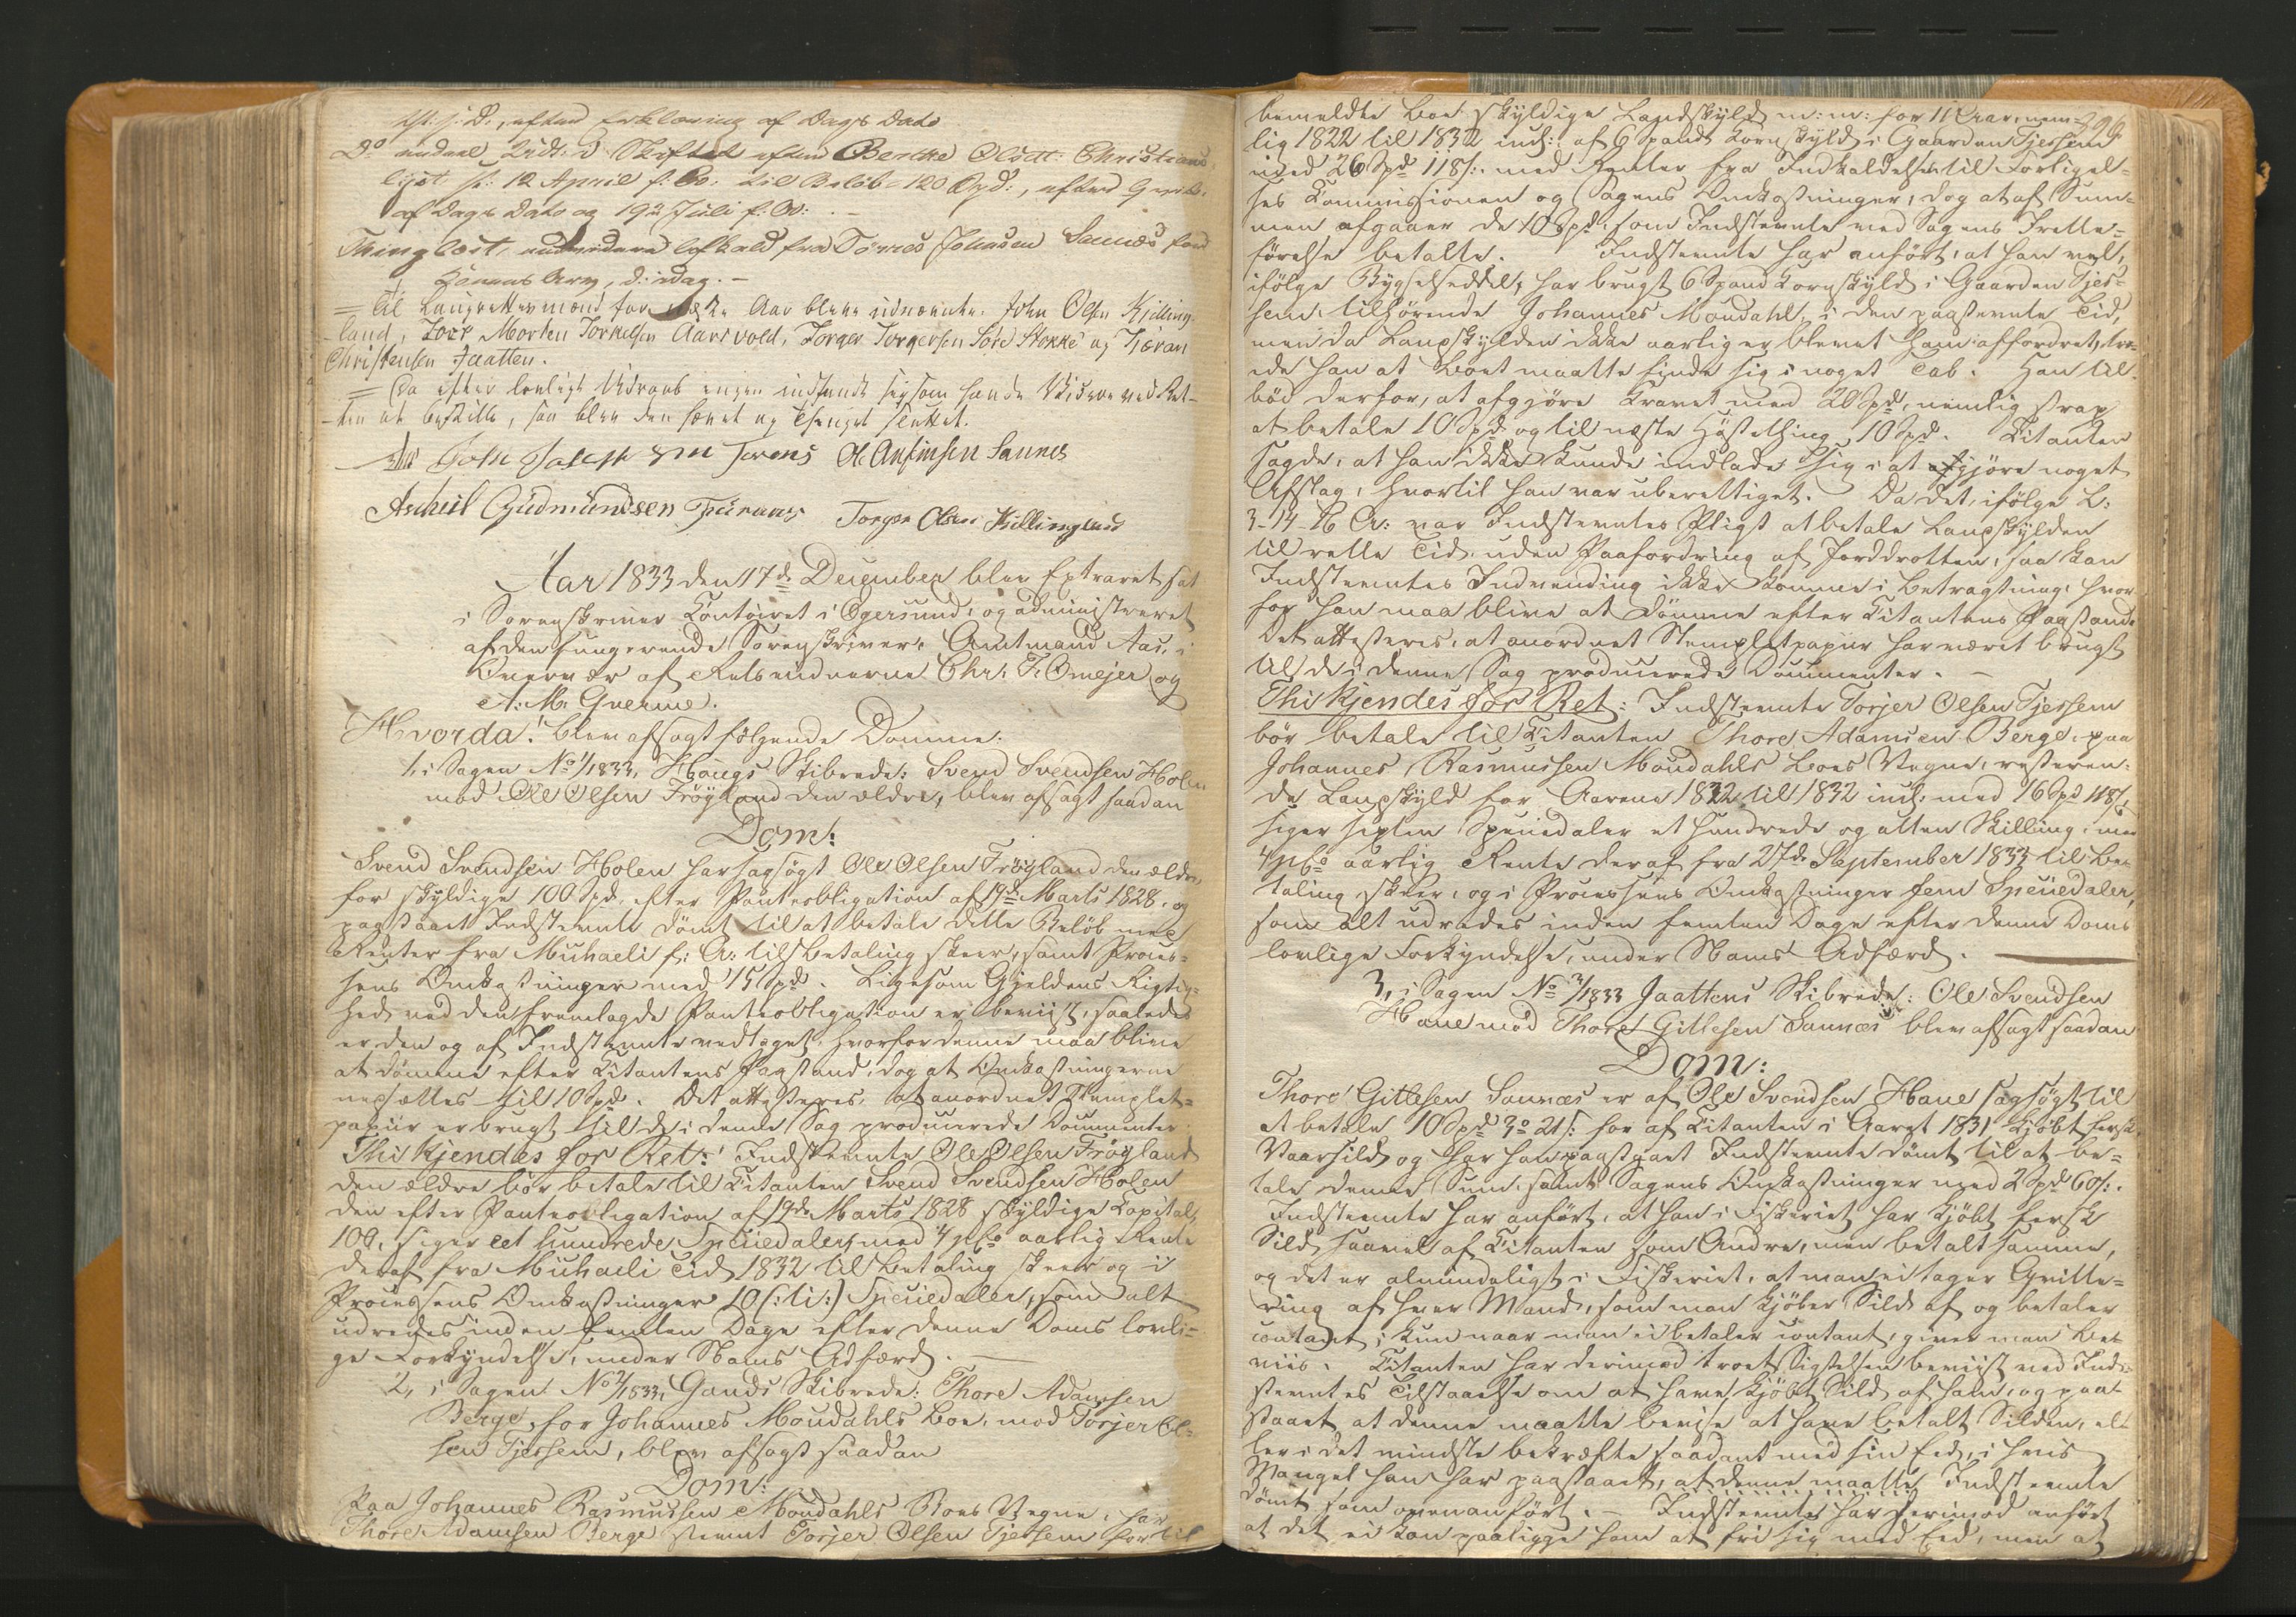 f: D:, efter Erklæring af Dags Dato
Do andael Lydt: i Skiftet efter Berthe Olsdt: Christians
lyst p: 12 April f: A: til Beløb 120 Spd:, efter Qvit.
af Dags Dato og 19de Juli f: A: . -
Thinglæst, endvidere Afkald fra Tønnes Johnsen Sannes for
Faders Arv, d: idag. -
= Til Laugrettesmænd for næste Aar bleve udnævnte John Olsen Kjelling-
land, Morten Torkelsen Aarsvold, Torger Torgersen Søre Stokke og Tjeran
Christensen Jaatten.
= Da efter lovligt Udraab ingen indfandt sig som havde Videre ved Ret-
ten at bestille, saa blev den hævet og Thinget sluttet.
Aas Ole Ansinsen Sannes
Aschiel Gudmundsen Torger Olsen Kiellingland
Aar 1833 den 17de December blev Extraret sat
i Sorenskriver Contoiret i Egersund, og administreret
af den fungerende Sorenskriver, Amtmand Aas, i
Overvær af Retsvidnerne Chr: F: Omejer og
A: M: Gverme.
Hvorda! blev afsagt følgende Domme.
1, i Sagen No 1/1833, Haugs Skibrede: Svend Svendsen Holen
mod Ole Olsen Frøyland den ældre, blev afsagt saadan
Dom:
Svend Svendsen Holen har sagsøgt Ole Olsen Frøyland den ældre,
for skyldige 100 Spd. efter Panteobligation af 19de Marts 1828, og
paastaaet Indstevnte dømt til at betale dette Beløb med
Renter fra Michaeli f: A: til Betaling skeer, samt Proces-
sens Omkostninger med 15 Spd. Ligesom Gjeldens Rigtig-
hed ved den fremlagde Panteobligation er beviist, saaledes
er den og af Indstevnte vedtaget, hvorfor denne maa blive
at dømme efter Citantens Paastand, dog at Omkostningerne
nedsættes til 10 Spd. Det attesteres, at anordnet Stemplet-
papiir er brugt til de i denne Sag producerede Documenter
Thi kjendes for Ret: Indstevnte Ole Olsen Frøyland
den ældre bør betale til Citanten Svend Svendsen Holen
den efter Panteobligation af 19de Marts 1828 skyldige Capital,
100, siger eet hundrede Speciedaler, med 4 pCto aarlig Rente
deraf fra Michaeli Tid 1832 til Betaling skeer og i
Processens Omkostninger 10 (: ti :) Speciedaler, som alt
udredes inden femten Dage efter denne Doms lovli-
ge Forkyndelse, under Nams Adfærd. -
2, i Sagen No 2/1833, Gands Skibrede: Thore Adamsen
Berge, for Johannes Moudahls Boe, mod Torjer Ol-
sen Tjessem, blev afsagt saadan
Dom:
Paa Johannes Rasmussen Moudahls Boes Vegne, har
Thore Adamsen Berge stevnt Torjer Olsen Tjessem for til
396.
bemeldte Boe skyldige Landskyld m: m: for 11 Aar, nem-
lig 1822 til 1832 incl: af 6 Spands Kornskyld i Gaarden Tjessem
med 26 Spd 118 s: med Renter fra Indkaldelsen til Forligel-
ses Commissionen og Sagens Omkostninger, dog at af Sum-
men afgaaer de 10 Spd. som Indstevnte ved Sagens Frette-
førelse betalte. Indstevnte har anført, at han vel,
ifølge Bygselseddel, har brugt 6 Spand Kornskyld i Gaarden Tjes-
sem tilhørende Johannes Moudahl, i den paastevnte Tid,
men da Landskylden ikke aarlig er blevet ham affordret, tro-
ede han at Boet maatte finde sig i noget Tab. Han til-
bød derfor, at afgjøre Kravet med 20 Spd, nemlig strax
at betale 10 Spd og til næste Høstething 10 Spd. Citanten
sagde, at han ikke kunde indlade sig i at gjøre noget
Afslag, hvortil han var uberettiget. Da det, ifølge L:
3-14-16 A: var Indstevntes Pligt at betale Landskylden
til rette Tid, uden Paafordring af Jorddrotten, saa kan
Indstevntes Indvending ikke komme i Betragtning, hvor-
for han maa blive at dømme efter Citantens Paastand.
Det attesteres, at anordnet Stempletpapiir har været brugt
til de i denne Sag producerede Documenter. -
Thi kjendes for Ret: Indstevnte Torjer Olsen Tjessem
bør betale til Citanten Thore Adamsen Berge, paa
Johannes Rasmussen Moudahls Boes Vegne, resteren-
de Landskyld for Aarene 1822 til 1832 incl: med 16 Spd 118 s,
siger sexten Speciedaler et hundrede og atten Skilling, med
4 pCto aarlig Rente deraf fra 27de September 1833 til Be-
taling skeer, og i Processens Omkostninger fem Speciedaler,
som alt udredes inden femten Dage efter denne Doms
lovlige Forkyndelse, under Nams Adfærd.
3, i Sagen No 3/1833 Jaattens Skibrede: Ole Svendsen
Hane mod Thore Gitlesen Sannæs blev afsagt saadan
Dom:
Thore Gitlesen Sannæs er af Ole Svendsen Hane sagsøgt til
at betale 10 Spd 3o 21 s: for af Citanten i Aaret 1831 kjøbt fersk
Vaarsild og har han paastaaet Indstevnte dømt til at be-
tale denne Sum, samt Sagens Omkostninger med 2 Spd 60 s:.
Indstevnte har anført, at han i Fiskeriet har kjøbt fersk
Sild saavel af Citanten som Andre, men betalt samme,
og det er almindeligt i Fiskeriet, at man ei tager Qvitte-
ring af hver Mand, som man kjøber Sild af og betaler
contant; kun naar man ei betaler contant, giver man Be-
viis. Citanten har derimod troet Sigtelsen beviist ved Ind-
stevntes Tilstaaelse om at have kjøbt Sild af ham, og paa-
staaet at denne maatte bevise at have betalt Silden, el-
ler i det mindste bekræfte saadant med sin Eed, i hvis
Mangel han har paastaaet, at denne maatte Indstevnte
dømt som ovenanført. - Indstevnte har derimod anført
at det ei kan paaligge ham at fri sig med Eed, men at